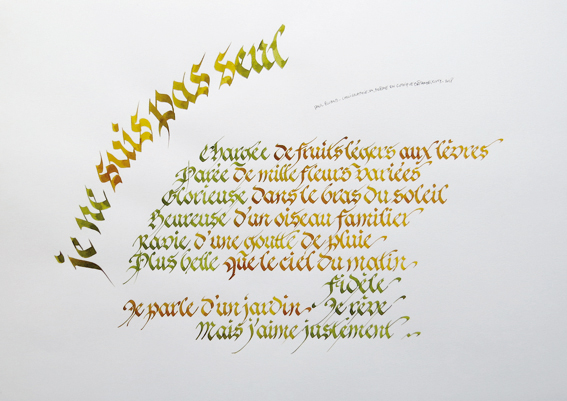 je ne suis pas seul
Chargée de fruits légers aux lèvres
Parée de mille fleurs variées
Glorieuse dans le bras du soleil
Heureuse d'un oiseau familier
Ravie d'une goutte de pluie
Plus belle que le ciel du matin
Fidèle
Je parle d'un jardin - Je rêve
Mais j'aime justement ..